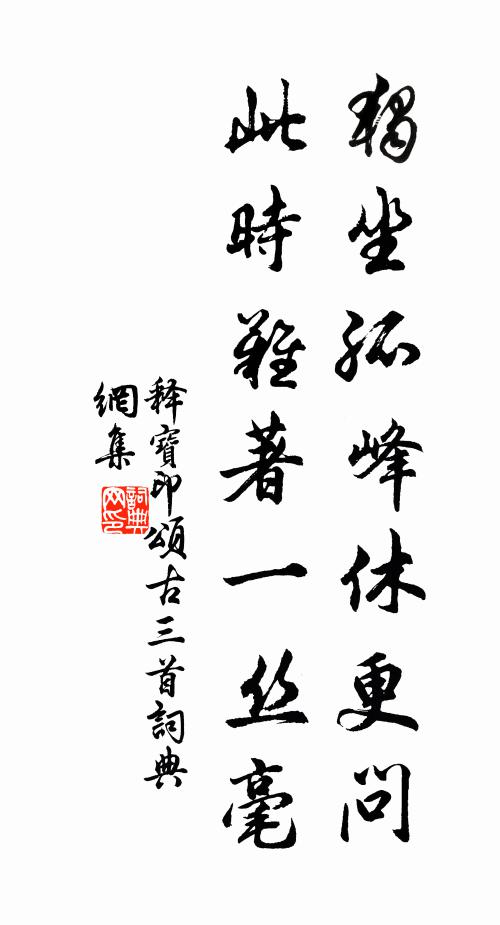 獨坐孤峰休更問
此時難著一丝毫
释寶印頌古三首詞典
網集
詞典
网印